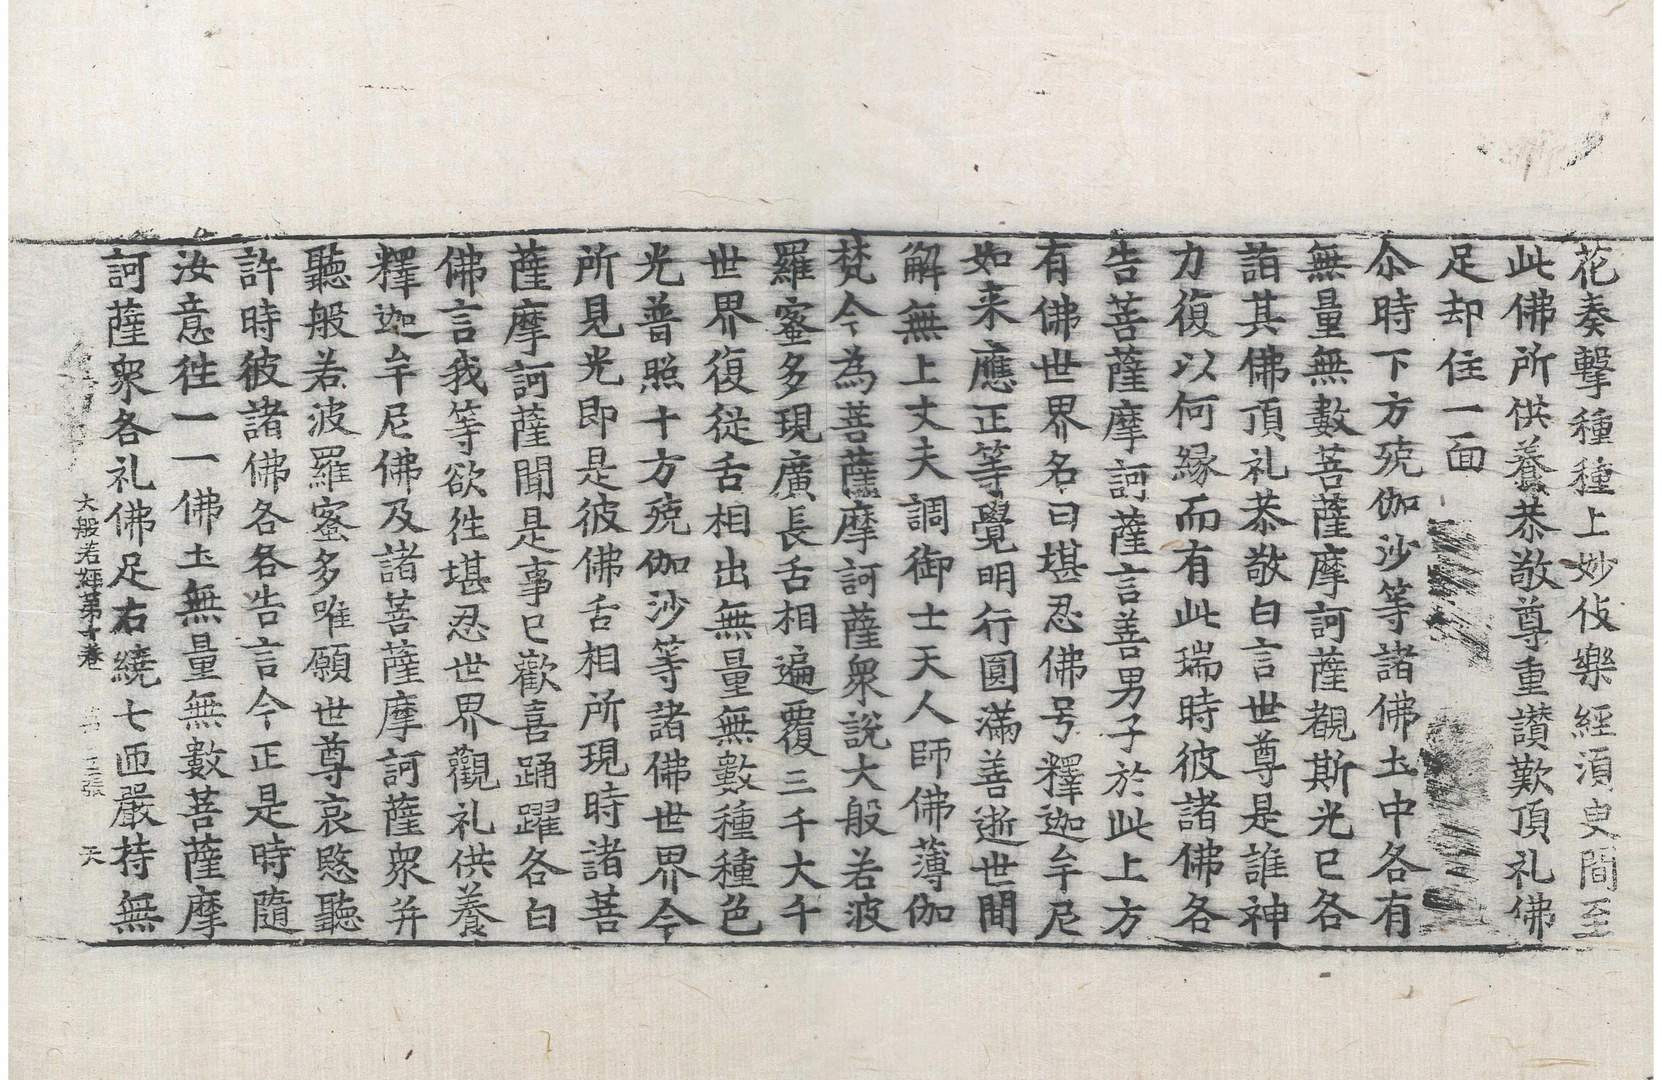 花奏擊種種上妙伎樂經須臾間至
此佛所供養恭敬尊重讃歎頂礼佛
足却住一面
尒時下方殑伽沙等諸佛圡中各有
無量無數菩薩摩訶薩覩斯光已各
詣其佛頂礼恭敬白言世尊是誰神
力復以何縁而有此瑞時彼諸佛各
告菩薩摩訶薩言善男子於此上方
有佛世界名曰堪忍佛号釋迦牟尼
如来應正等覺明行圓滿善逝世間
解無上丈夫調御士天人師佛薄伽
梵今為菩薩摩訶薩衆說大般若波
羅蜜多現廣長舌相遍覆三千大千
世界復從舌相出無量無數種種色
光普照十方殑伽沙等諸佛世界今
所見光即是彼佛舌相所現時諸菩
薩摩訶薩聞是事已歡喜踊躍各白
佛言我等欲徃堪忍世界觀礼供養
釋迦牟尼佛及諸菩薩摩訶薩衆并
聽般若波羅蜜多唯願世尊哀愍聽
許時彼諸佛各各告言今正是時隨
汝意徃一一佛圡無量無數菩薩摩
訶薩衆各礼佛足右繞七匝嚴持無
大般若經第十巻 張 天